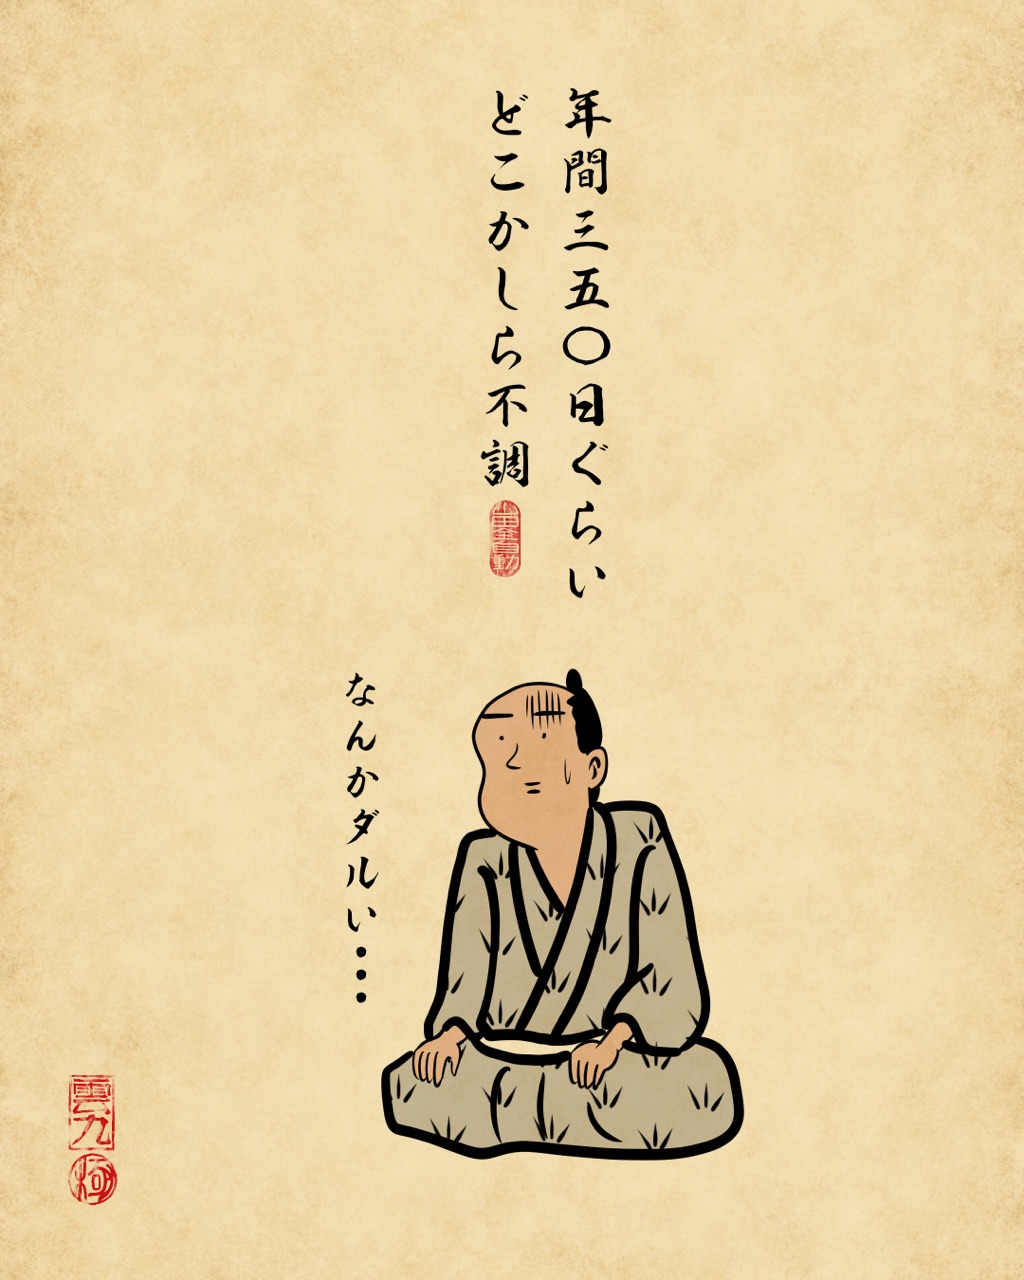 年間三五〇日ぐらい
どこかしら不調
なんかダルい・・・